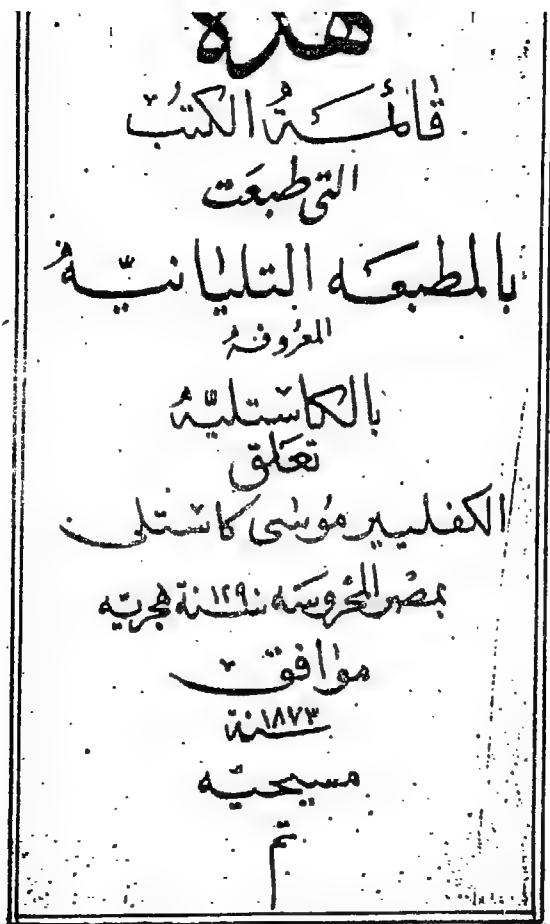 هذه
قائمة الكتب
التي طبعت
بالمطبعه التليانيه
المعروفه
بالكاستليه
تعلق
الكفليير موسى كاستلى
بمصر المحروسه سنة ١٢٩٠ هجريه
موافق
سنة ١٨٧٣
مسيحيه
تم